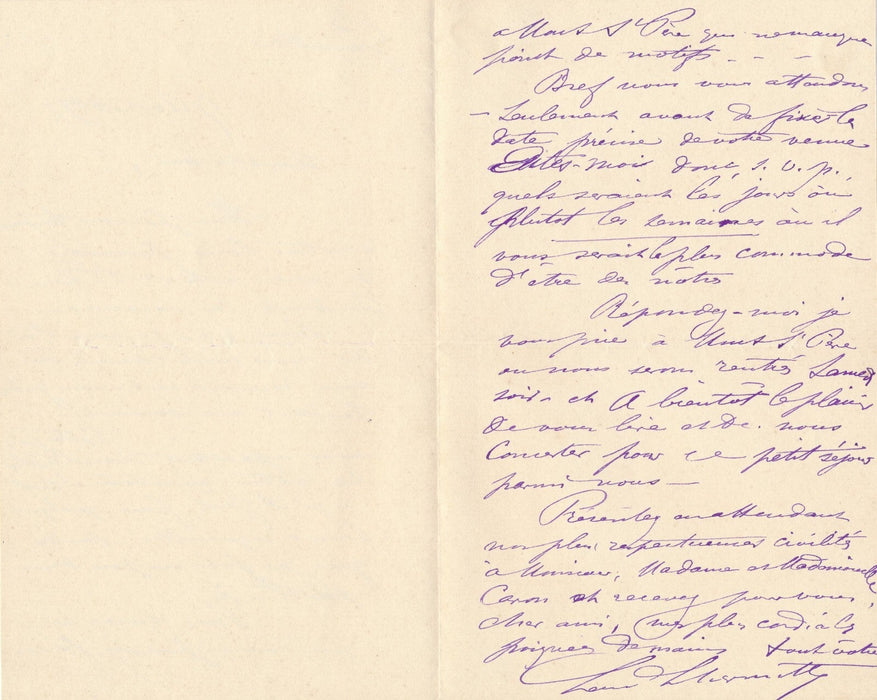 à Mont St Père qui ne manque
point de motifs - - -
Bref nous vous attendons
- Seulement avant de fixer la
date précise de votre venue
Dites-moi donc, s. v. p.,
quels seraient les jours où
plutôt les semaines où il
vous serait le plus commode
d'être des nôtres
Répondez-moi je
vous prie à Mont St Père
où nous serons rentrés Samedi
soir - et A bientôt le plaisir
de vous lire et de nous
concerter pour ce petit séjour
parmi nous -
Présentez en attendant
nos plus respectueuses civilités
à Monsieur, Madame et Mademoiselle
Caron et recevez pour vous,
cher ami, mes plus cordiales
poignées de mains tout vôtre
Léon Lhermitte